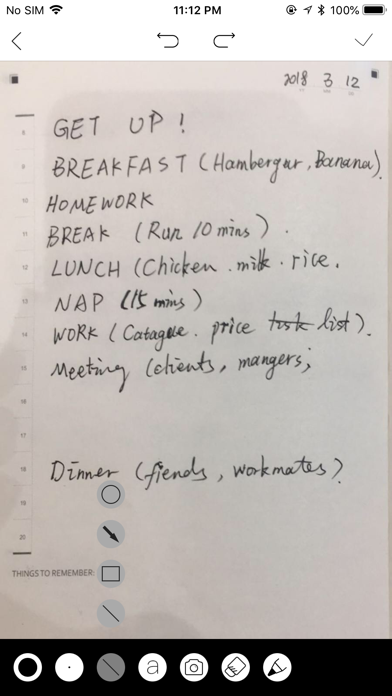 No SIM 11:12 PM 100%
2018 3 12
8 GET UP!
9 BREAKFAST (Hambergur, Banana).
10 HOMEWORK
11 BREAK (Run 10 mins).
12 LUNCH (Chicken. milk. rice.
13 NAP (15 mins)
14 WORK (Catague. price tisk list).
15 Meeting (clients, mangers;
16
17
18 Dinner (fiends, workmates)
19
20
THINGS TO REMEMBER:
a